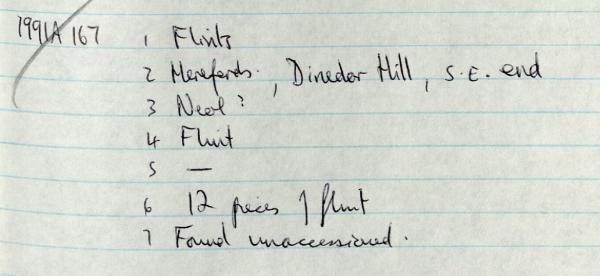 1991A 167 1 Flints
2 Herefords. , Dinedor Hill, S.E. end
3 Neol?
4 Flint
5 —
6 12 pieces of flint
7 Found unaccessioned.